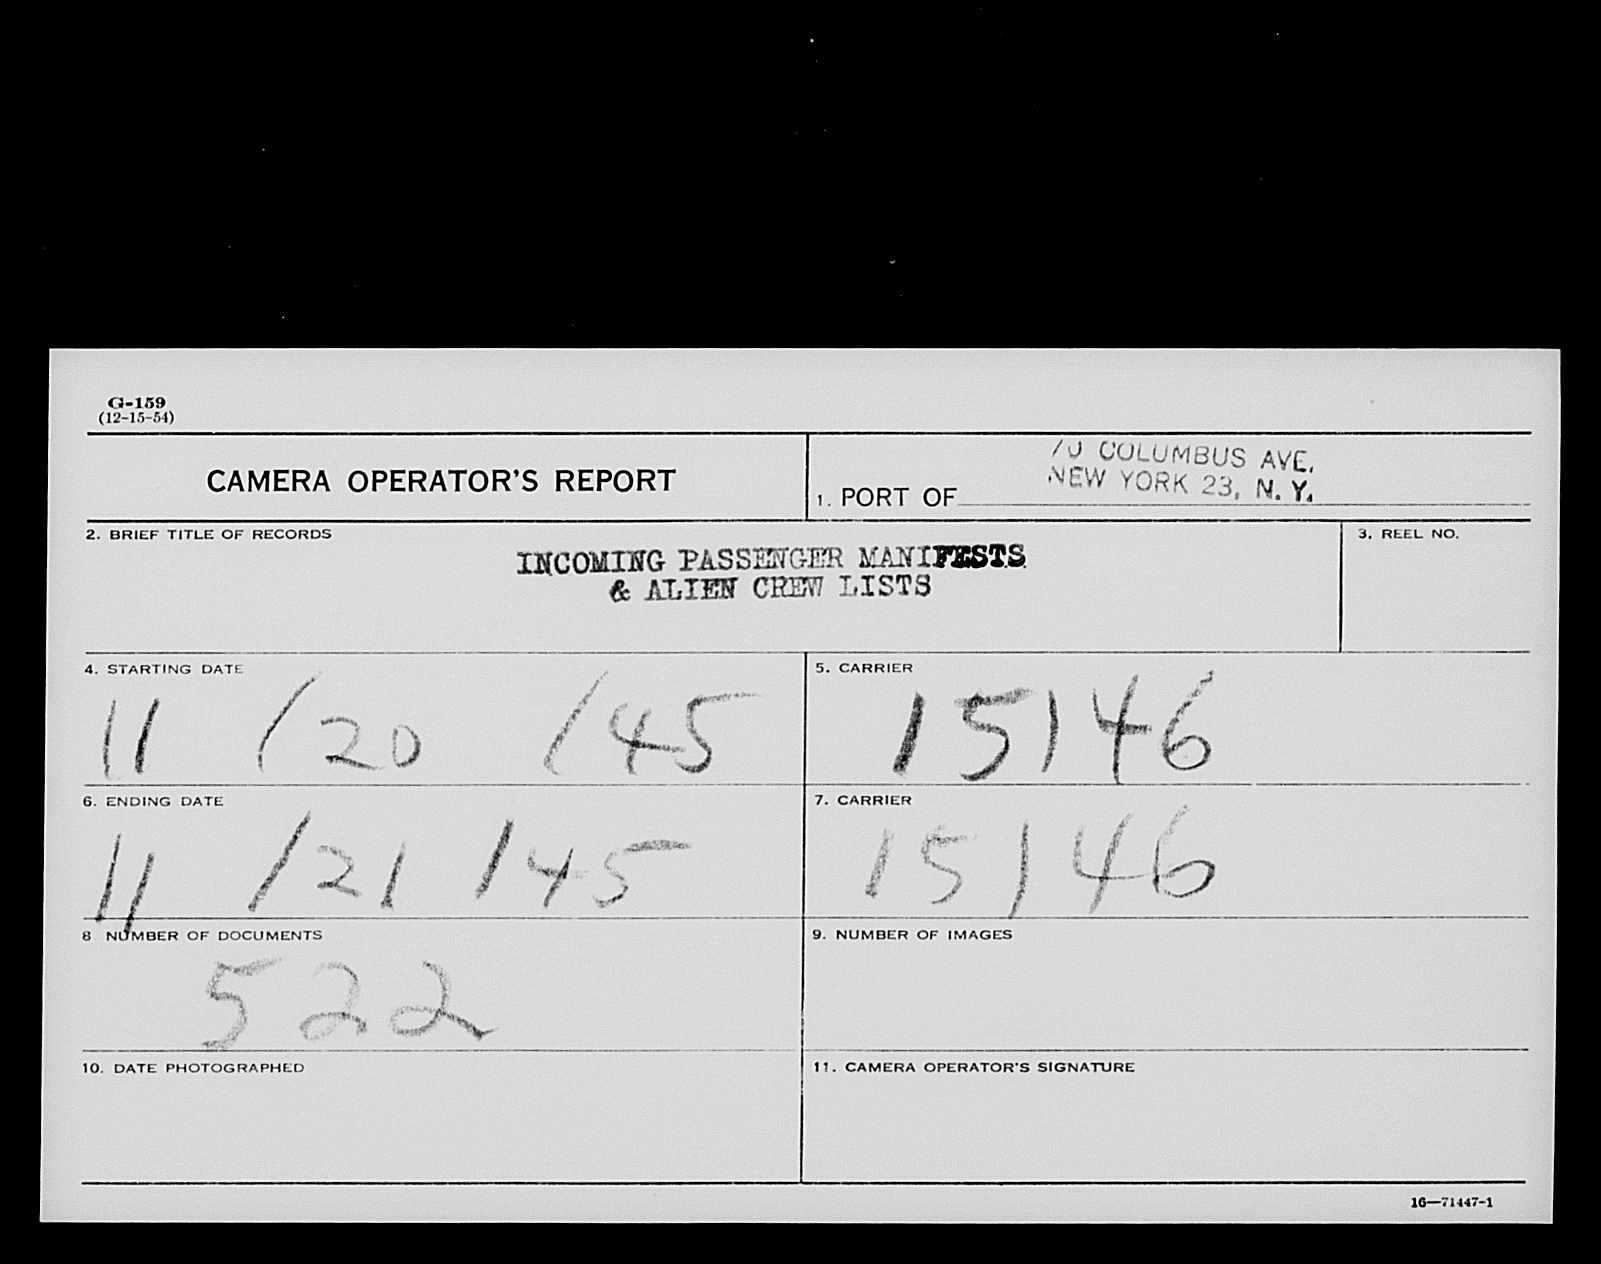 G-159
(12-15-54)
CAMERA OPERATOR'S REPORT
70 COLUMBUS AVE.
NEW YORK 23, N. Y.
1. PORT OF
2. BRIEF TITLE OF RECORDS
INCOMING PASSENGER MANIFESTS
& ALIEN CREW LISTS
3. REEL NO.
4. STARTING DATE
11 /20 /45
5. CARRIER
15146
6. ENDING DATE
11 /21 /45
7. CARRIER
15146
8 NUMBER OF DOCUMENTS
522
9. NUMBER OF IMAGES
10. DATE PHOTOGRAPHED
11. CAMERA OPERATOR'S SIGNATURE
16—71447-1